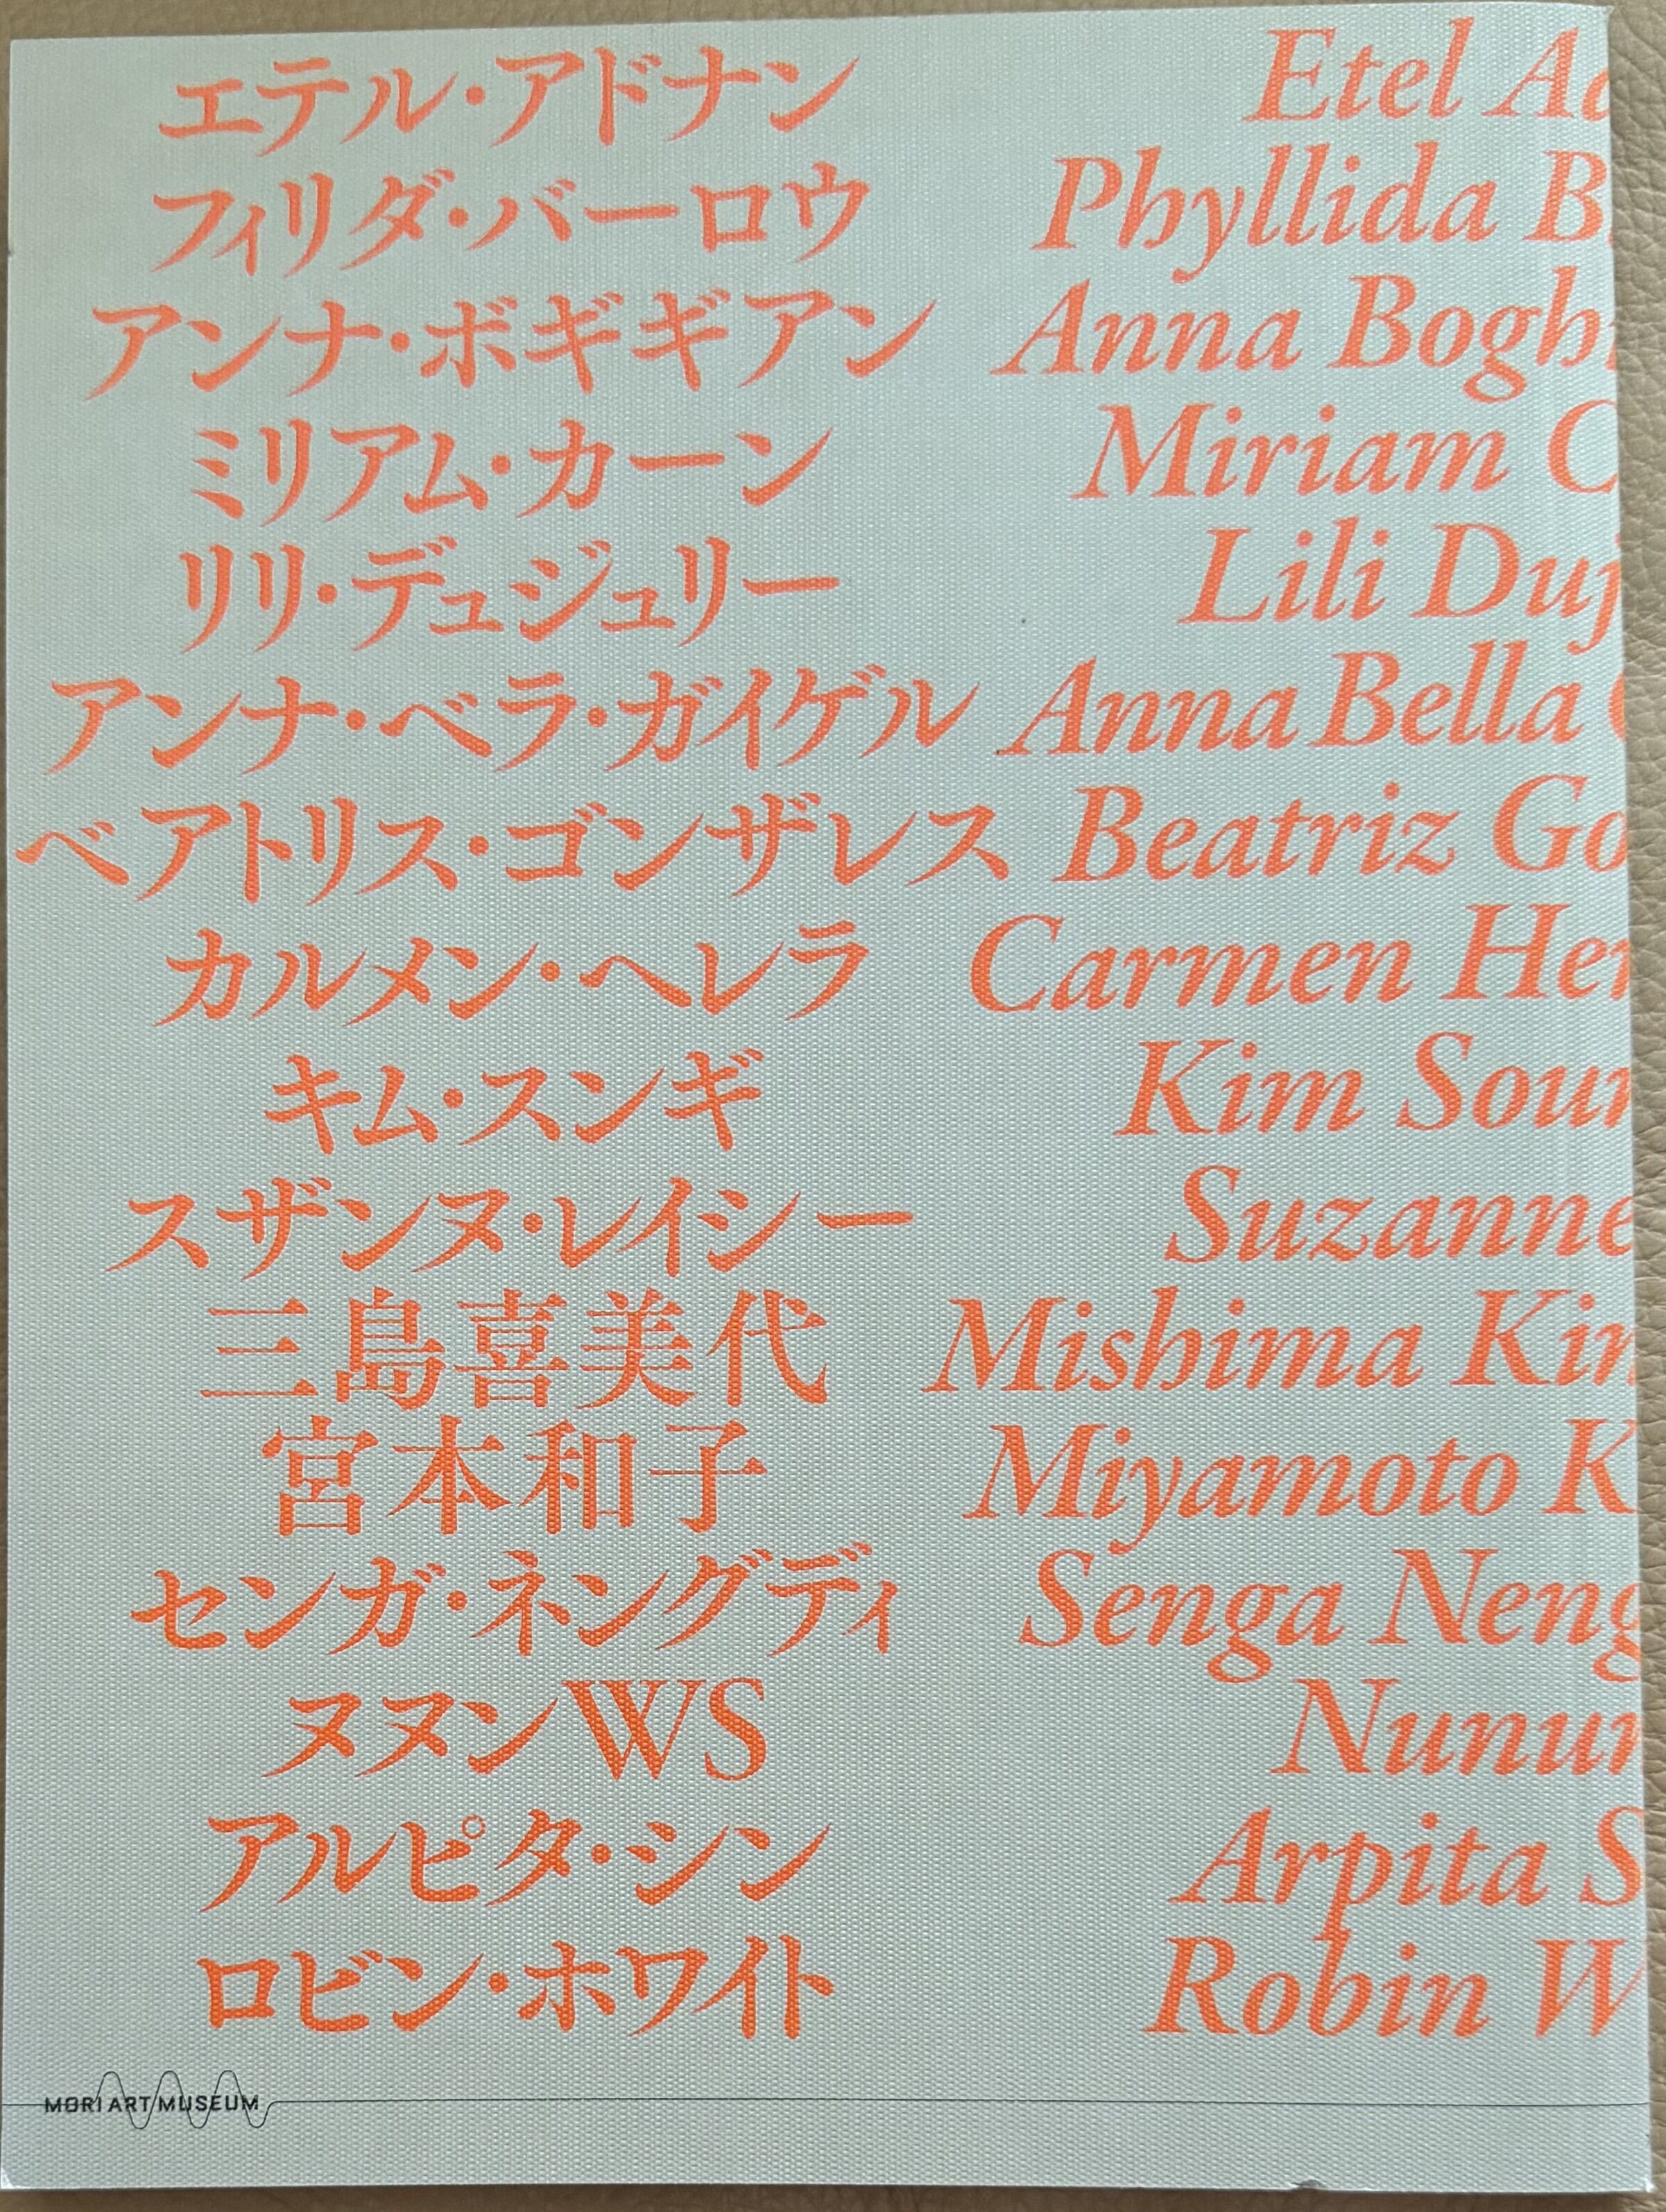 エテル・アドナン Etel Ad
フィリダ・バーロウ Phyllida B
アンナ・ボギギアン Anna Bogh
ミリアム・カーン Miriam C
リリ・デュジュリー Lili Duj
アンナ・ベラ・ガイゲル Anna Bella G
ベアトリス・ゴンザレス Beatriz Go
カルメン・ヘレラ Carmen Her
キム・スンギ Kim Soun
スザンヌ・レイシー Suzanne
三島喜美代 Mishima Kim
宮本和子 Miyamoto K
センガ・ネングディ Senga Neng
ヌヌンWS Nunun
アルピタ・シン Arpita S
ロビン・ホワイト Robin W
MORI ART MUSEUM